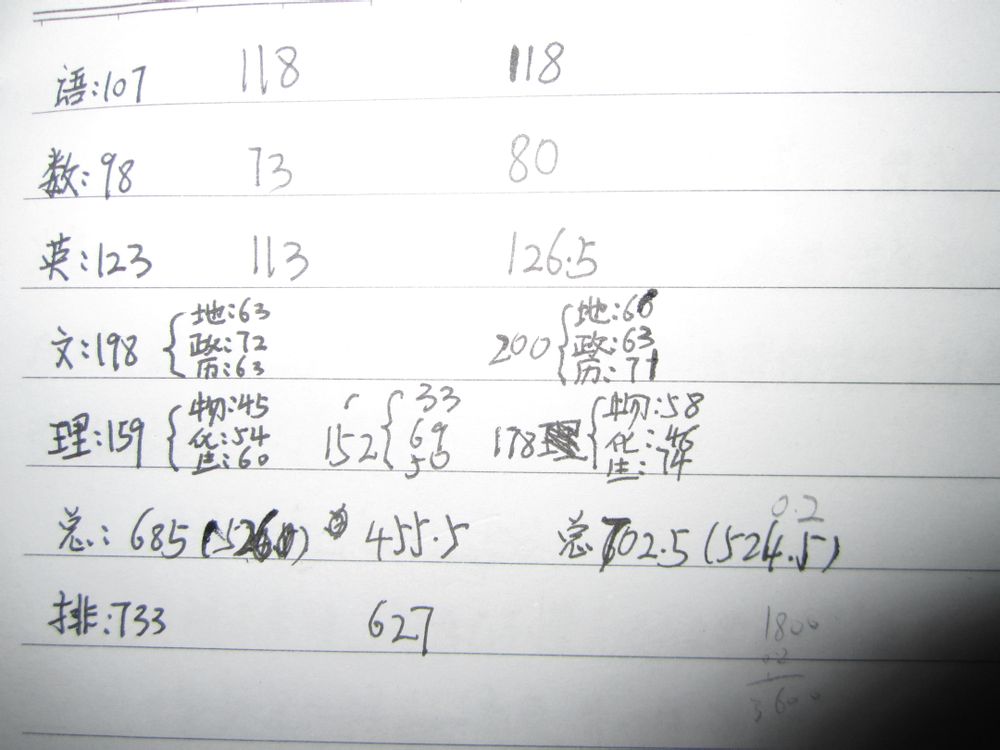 语:107 118 118
数:98 73 80
英:123 113 126.5
文:198 { 地:63 政:72 历:63 200 { 地:66 政:63 历:71
理:159 { 物:45 化:54 生:60 152 { 33 69 50 178 { 物:58 化:46 生:74
0.2
总:685 (526) 455.5 总702.5 (524.5)
排:733 627
1800
0.2
3600